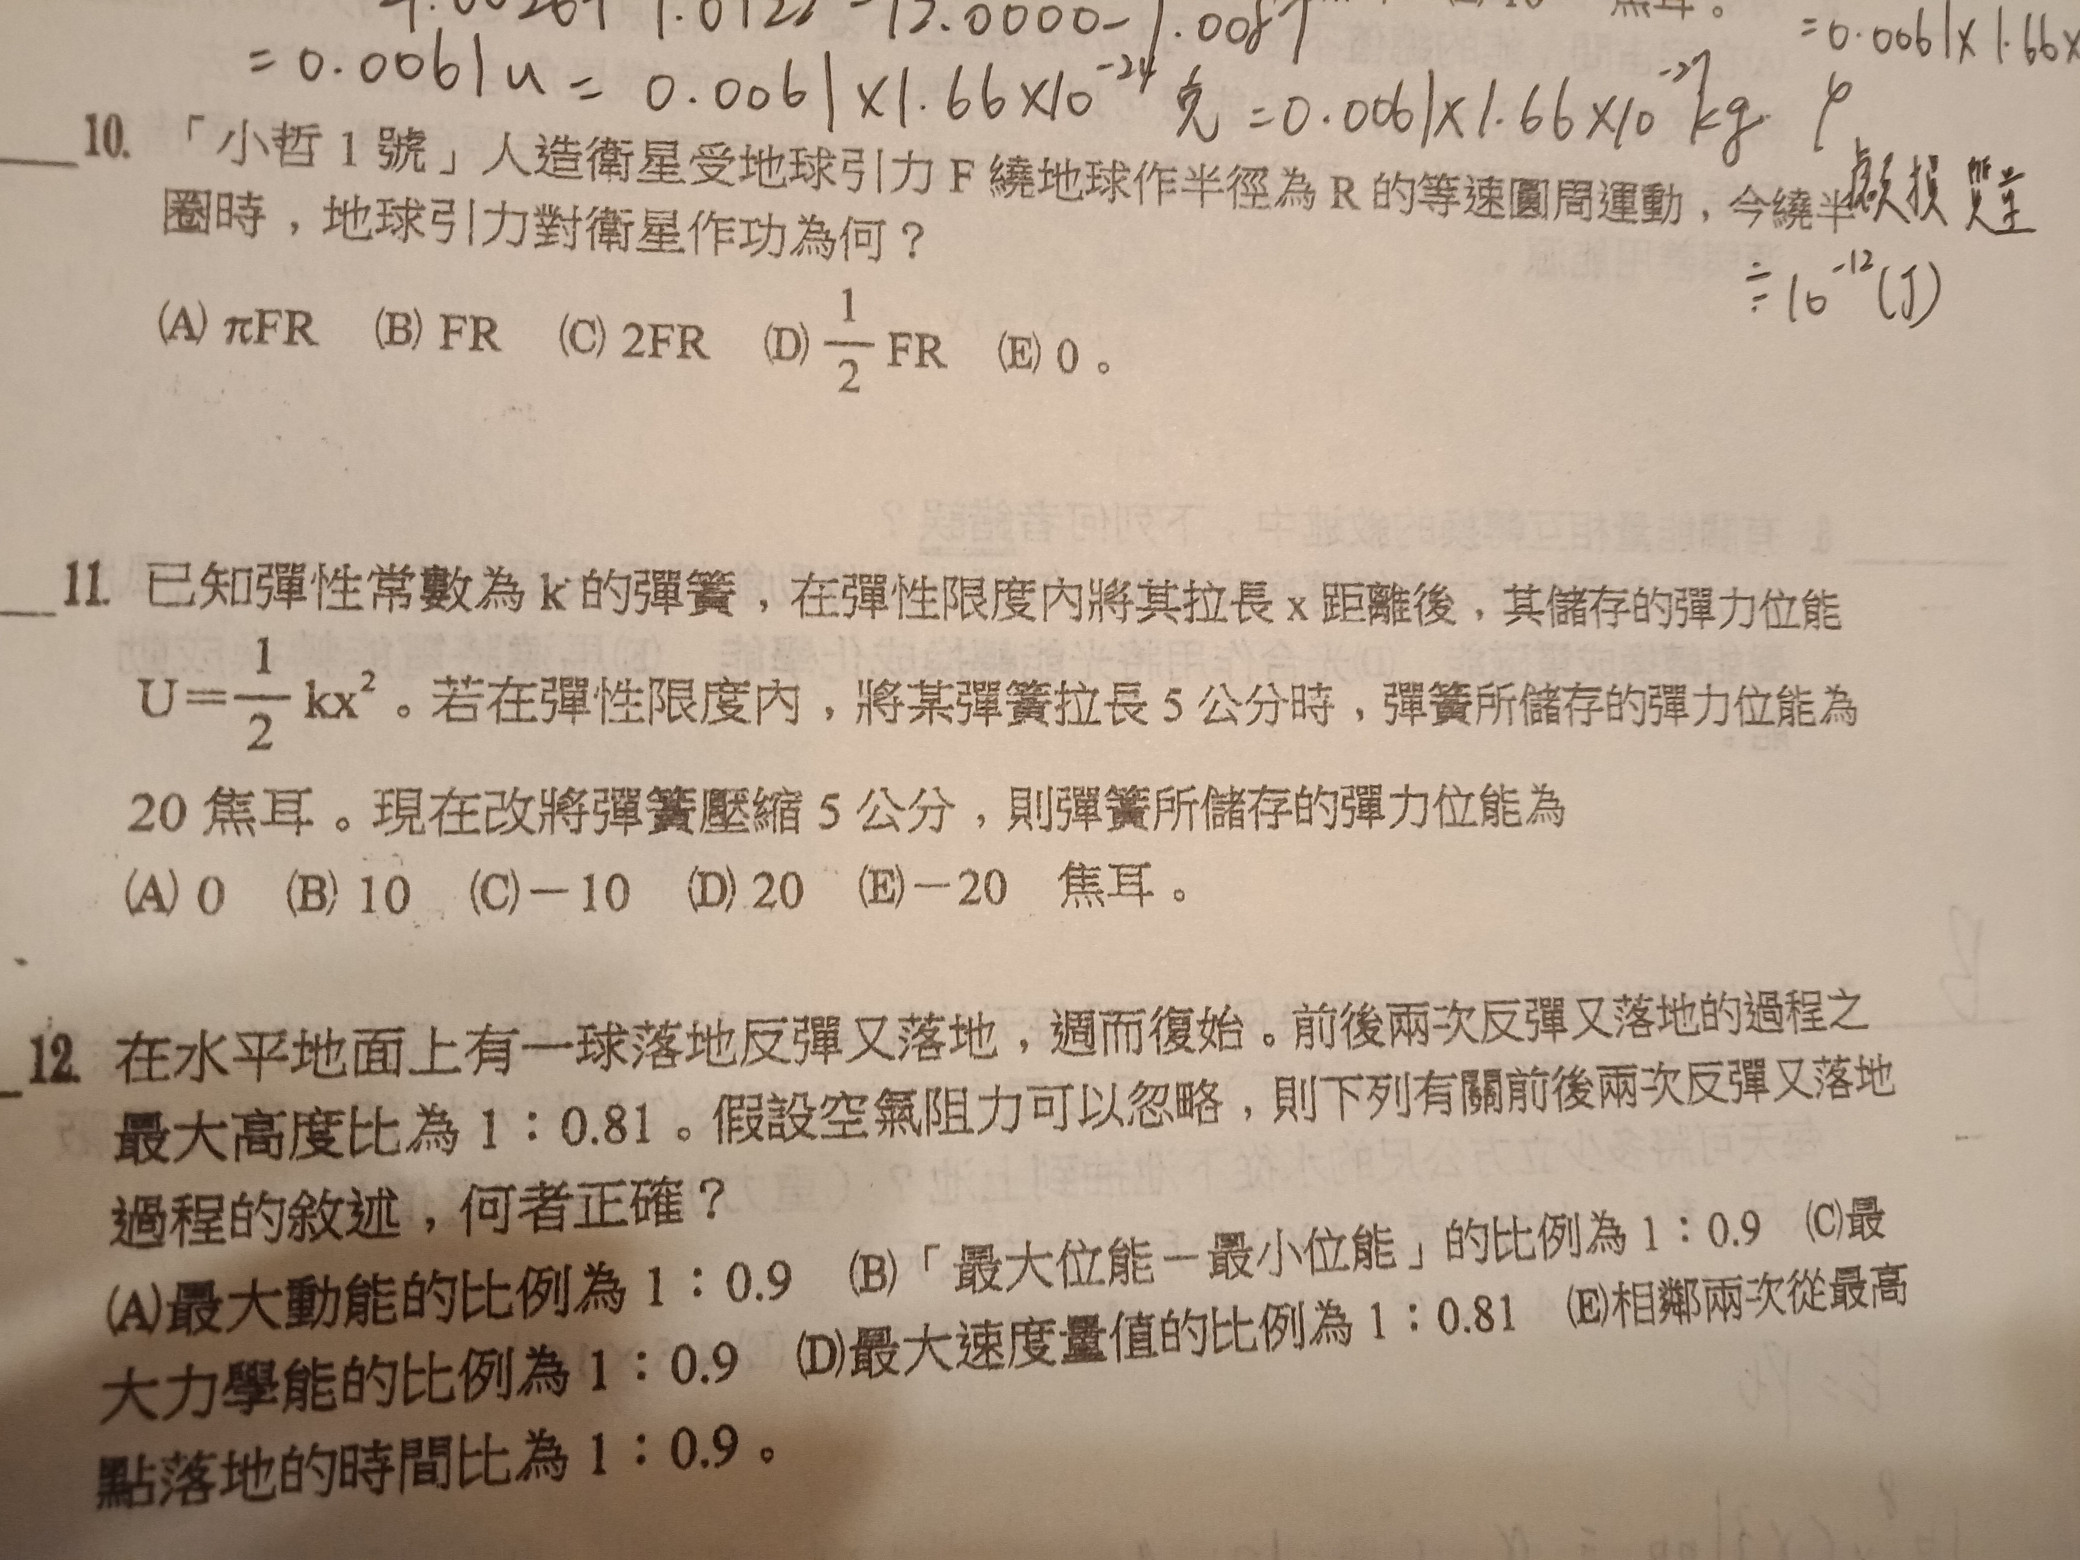 =0.0061u = 0.0061×1.66×10⁻²⁴克=0.0061×1.66×10⁻²⁷kg
=0.0061×1.66×
10. 「小哲1號」人造衛星受地球引力F繞地球作半徑為R的等速圓周運動，今繞半
圈時，地球引力對衛星作功為何？
虧損質量
≒10⁻¹²(J)
(A) πFR (B) FR (C) 2FR (D) 1/2 FR (E) 0。
11. 已知彈性常數為k的彈簧，在彈性限度內將其拉長x距離後，其儲存的彈力位能
U＝1/2 kx²。若在彈性限度內，將某彈簧拉長5公分時，彈簧所儲存的彈力位能為
20焦耳。現在改將彈簧壓縮5公分，則彈簧所儲存的彈力位能為
(A) 0 (B) 10 (C)－10 (D) 20 (E)－20 焦耳。
12. 在水平地面上有一球落地反彈又落地，週而復始。前後兩次反彈又落地的過程之
最大高度比為1：0.81。假設空氣阻力可以忽略，則下列有關前後兩次反彈又落地
過程的敘述，何者正確？
(A)最大動能的比例為1：0.9 (B)「最大位能－最小位能」的比例為1：0.9 (C)最
大力學能的比例為1：0.9 (D)最大速度量值的比例為1：0.81 (E)相鄰兩次從最高
點落地的時間比為1：0.9。